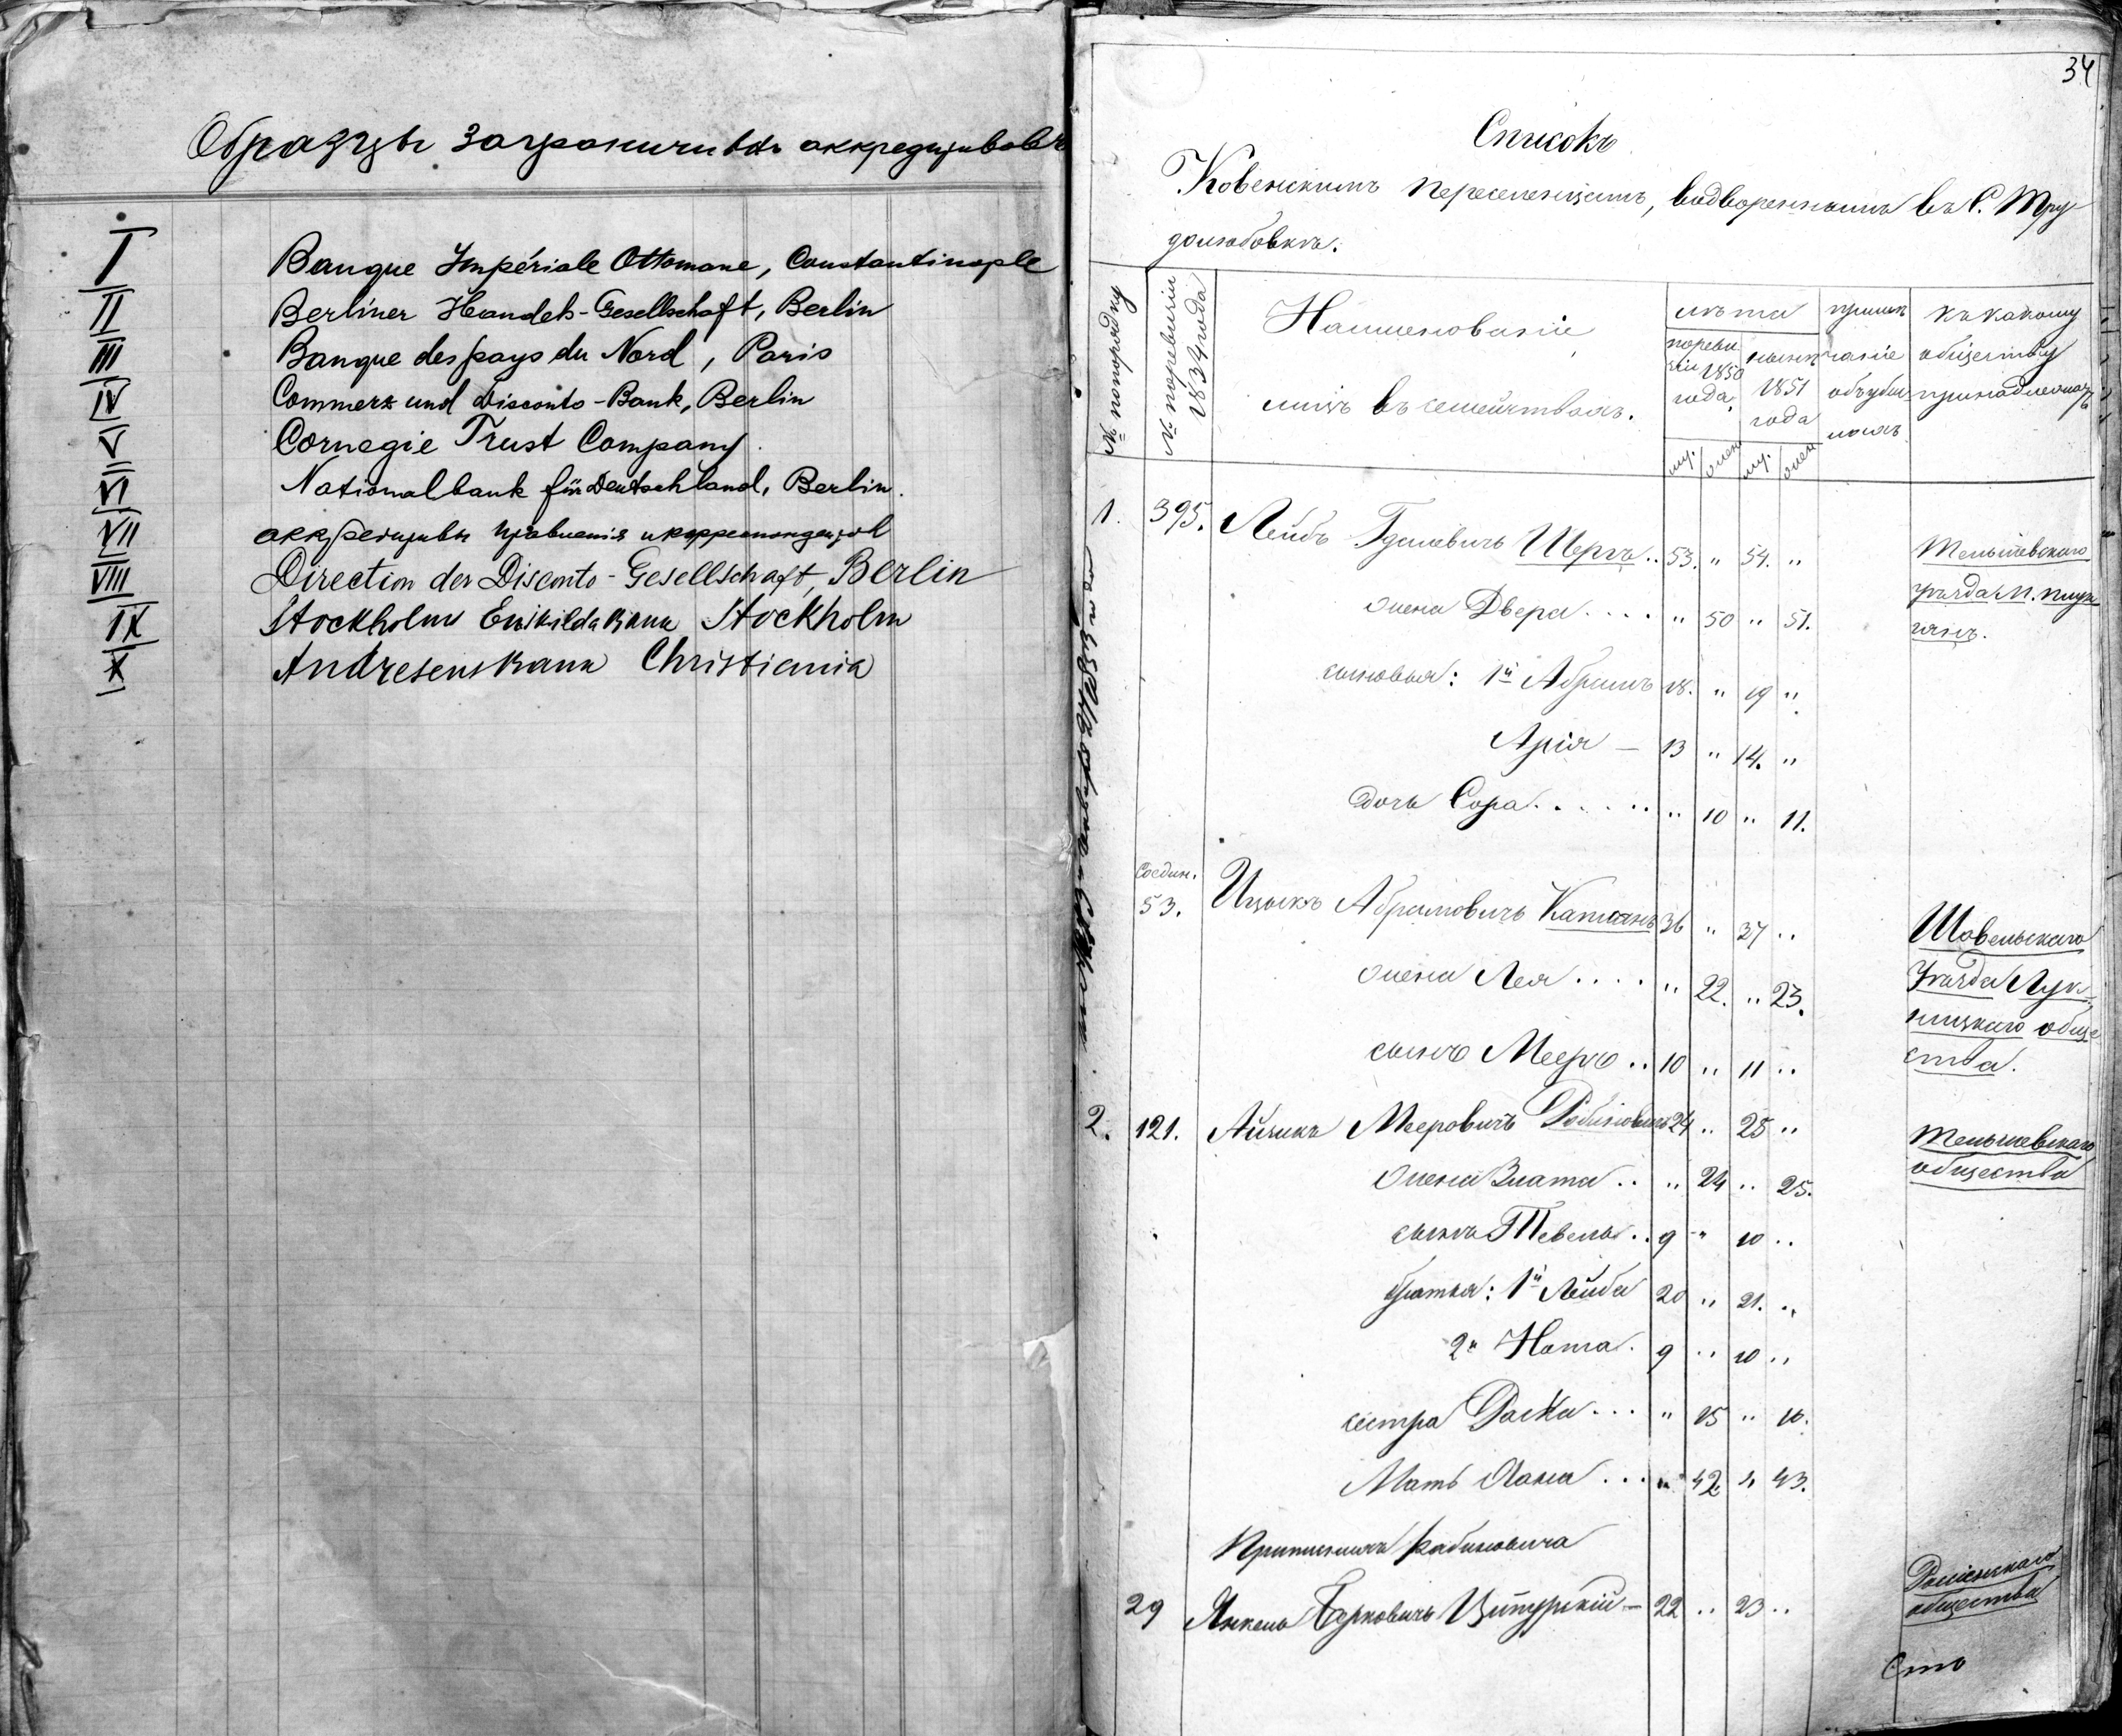 Образцы заграничныхъ аккредитивовъ
I Banque Impériale Ottomane, Constantinople
II Berliner Handels-Gesellschaft, Berlin
III Banque des pays du Nord, Paris
IV Commerz und Disconto-Bank, Berlin
V Carnegie Trust Company.
VI Nationalbank für Deutschland, Berlin.
VII аккредитивы правленія и корреспондентовъ
VIII Direction der Disconto-Gesellschaft, Berlin
IX Stockholms Enskilda Bank Stockholm
X Andresens Bank Christiania
34
Списокъ
Ковенскимъ переселенцамъ, водвореннымъ въ С. Тру-
долюбовкѣ.
№ по порядку
№ по ревизіи 1834 года
Наименованіе
лицъ въ семействахъ.
лѣта
по реви-
зіи 1850
года.
нынѣ
1851
года
му.
жен
му.
жен
примѣ-
чаніе
объ убы-
лыхъ
къ какому
обществу
принадлежатъ
1. 395. Лейбъ Гдалевичъ Шеръ .. 53. " 54. " Тельшевскаго
уѣзда М.
жена Двера .... " 50 " 51.
сыновья: 1й Абрамъ 18. " 19 "
Арія — 13 " 14. "
дочь Сора ..... " 10 " 11.
Соедин.
53. Ицыкъ Абрамовичъ 36 " 37 " Шавельскаго
жена Лея .... " 22. " 23. уѣзда Лук-
ницкаго обще-
сынъ Мееръ .. 10 " 11 " ства.
2. 121. Айзикъ Мееровичъ Рабиновичъ 24 " 25 " Тельшевскаго
общества
жена Злата .. " 24 " 25.
сынъ Тевель .. 9 " 10 "
братья: 1й Лейба 20 " 21. "
2й Нота. 9 " 10 "
сестра ... " 15 " 16.
Мать Хана ... " 42 " 43.
Рабиновича
29 Янкель Берковичъ — 22 " 23 " Россіенскаго
общества